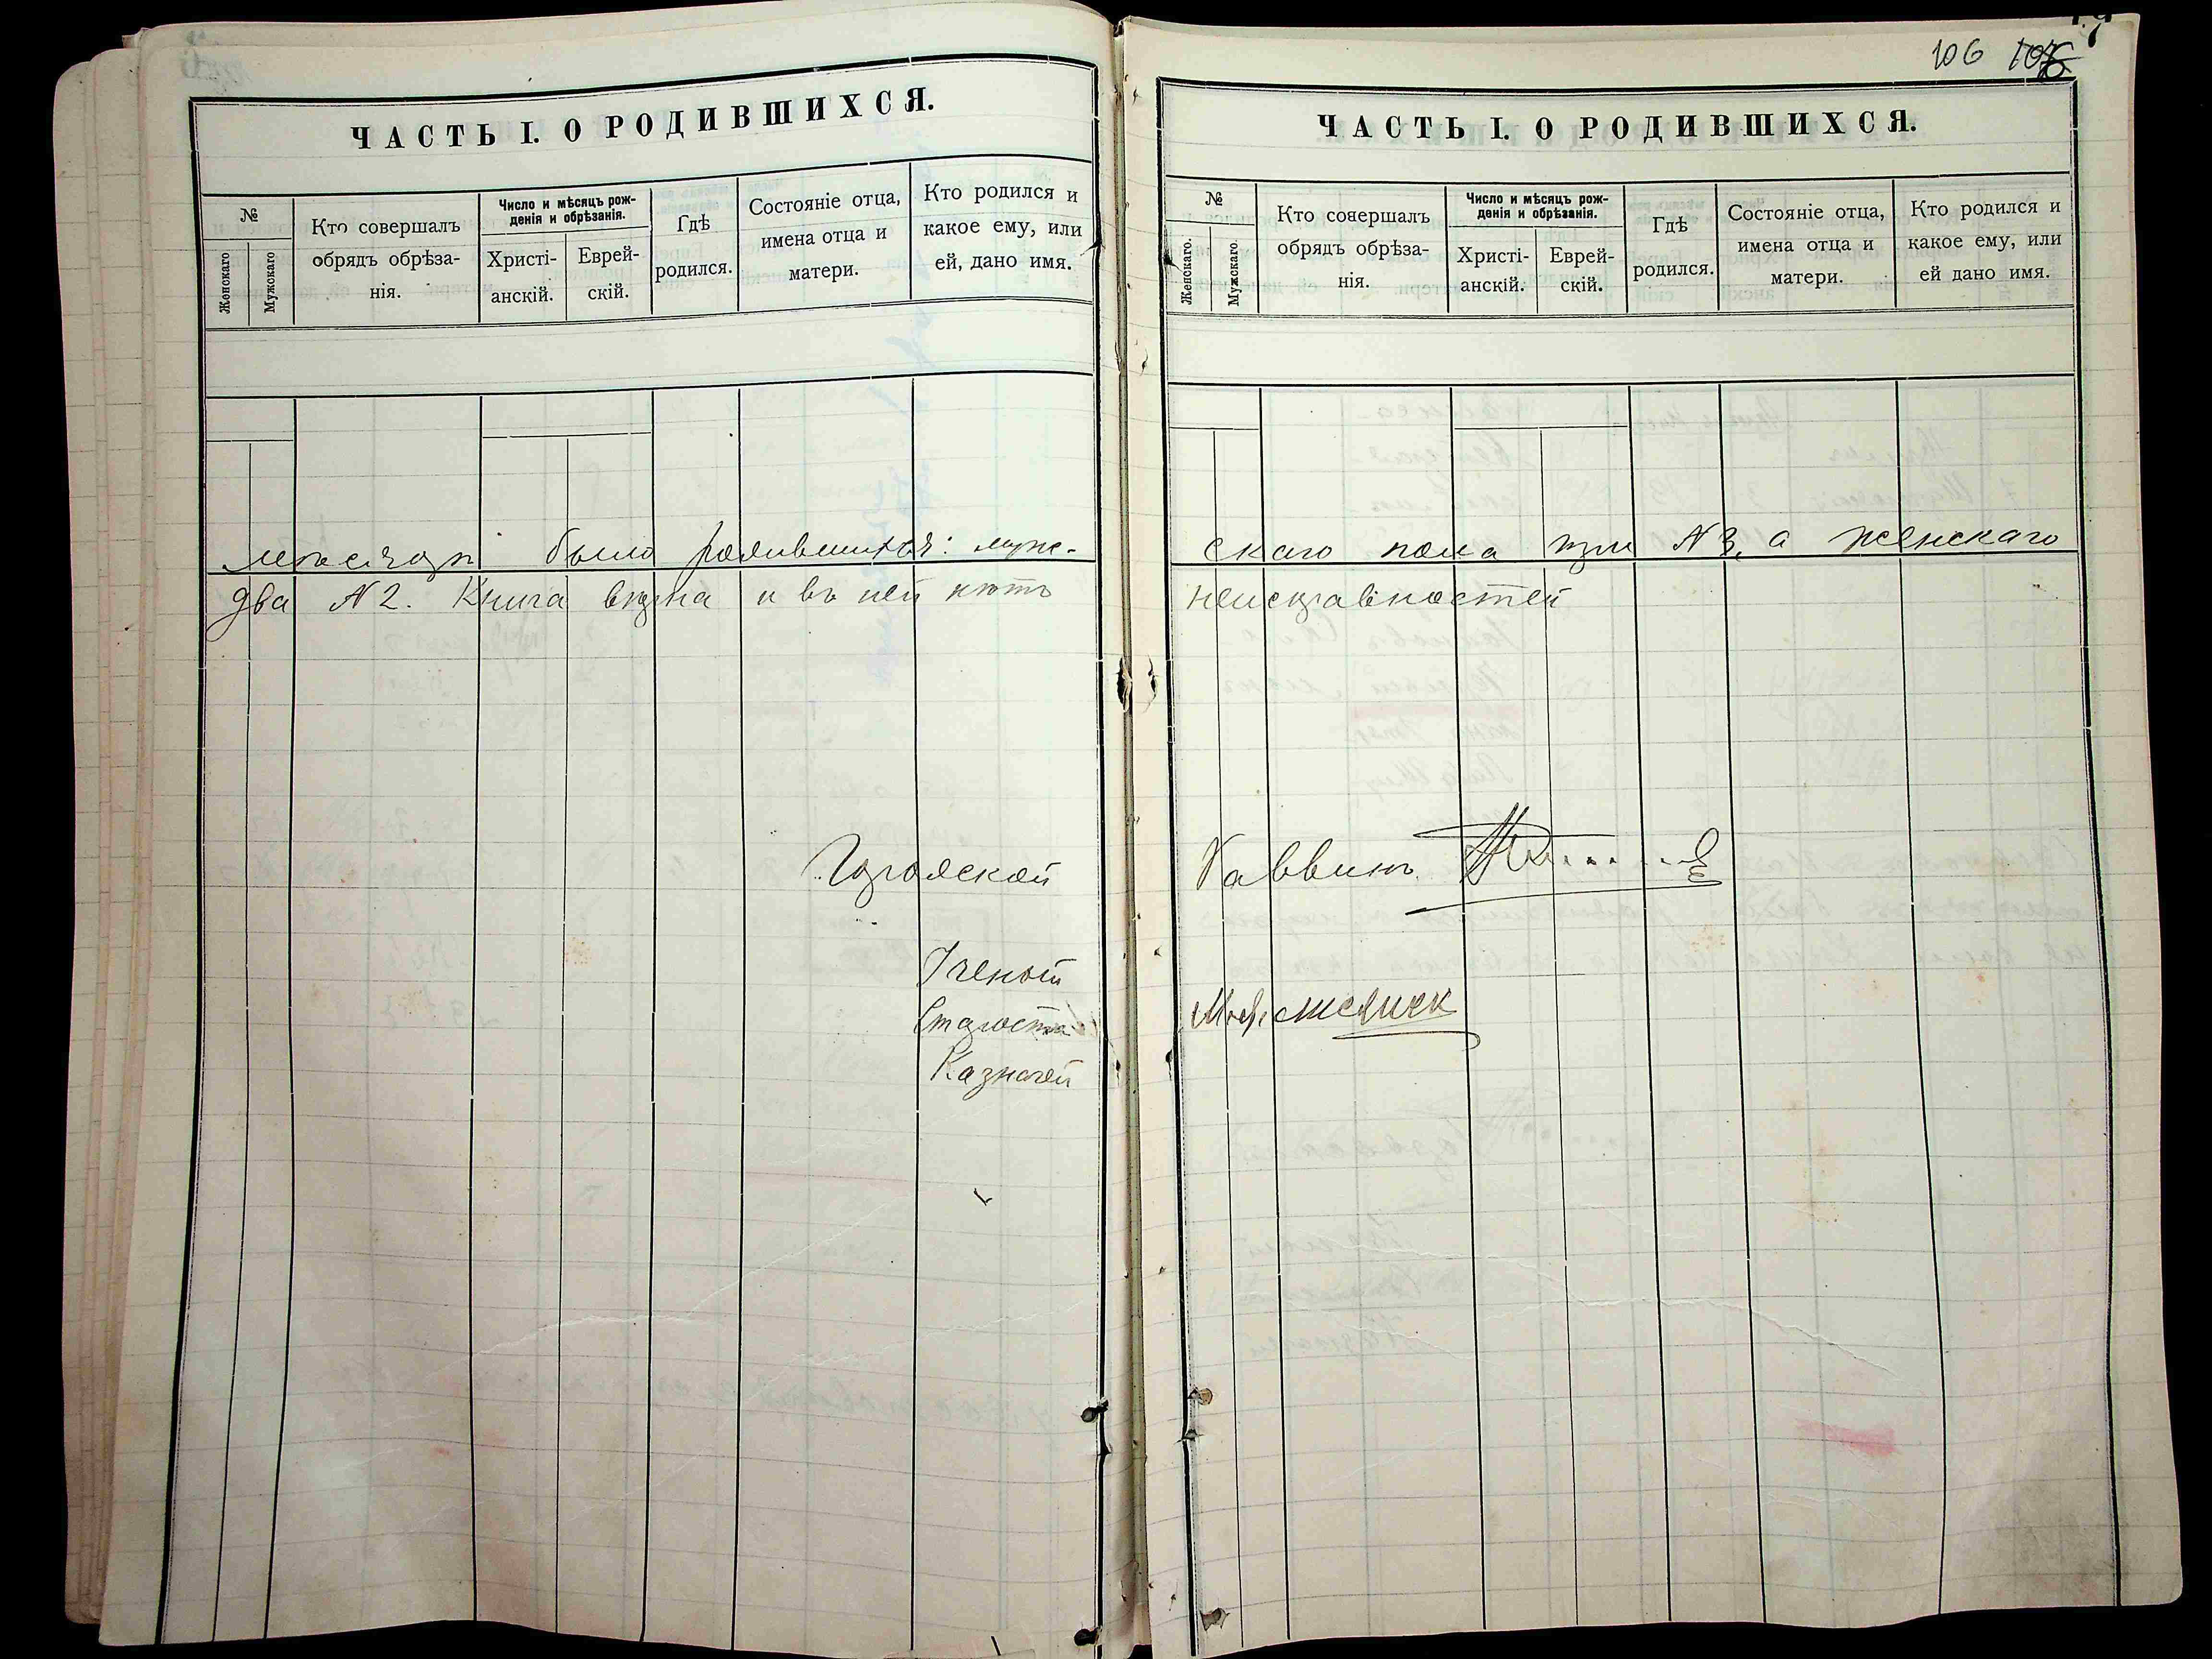 106
ЧАСТЬ I. О РОДИВШИХСЯ.
№
Женскаго
Мужскаго
Кто совершалъ
обрядъ обрѣза-
нія.
Число и мѣсяцъ рож-
денія и обрѣзанія.
Христі-
анскій.
Еврей-
скій.
Гдѣ
родился.
Состояніе отца,
имена отца и
матери.
Кто родился и
какое ему, или
ей, дано имя.
мѣсяцѣ было родившихся: муже-
два № 2. Книга вѣрна и въ ней нѣтъ
Городской
Ученый
Староста
Казначей
ЧАСТЬ I. О РОДИВШИХСЯ.
№
Женскаго.
Мужскаго.
Кто совершалъ
обрядъ обрѣза-
нія.
Число и мѣсяцъ рож-
денія и обрѣзанія.
Христі-
анскій.
Еврей-
скій.
Гдѣ
родился.
Состояніе отца,
имена отца и
матери.
Кто родился и
какое ему, или
ей дано имя.
скаго пола три № 3, а женскаго
неисправностей
Раввинъ